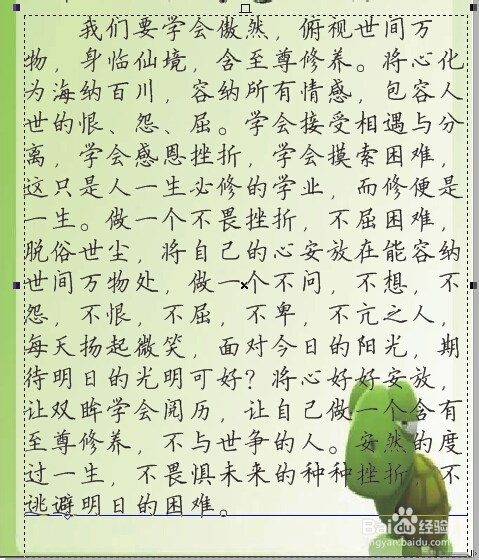 我们要学会傲然，俯视世间万
物，身临仙境，含至尊修养。将心化
为海纳百川，容纳所有情感，包容人
世的恨、怨、屈。学会接受相遇与分
离，学会感恩挫折，学会摸索困难，
这只是人一生必修的学业，而修便是
一生。做一个不畏挫折，不屈困难，
脱俗世尘，将自己的心安放在能容纳
世间万物处，做一个不问，不想，不
怨，不恨，不屈，不卑，不亢之人，
每天扬起微笑，面对今日的阳光，期
待明日的光明可好？将心好好安放，
让双眸学会阅历，让自己做一个含有
至尊修养，不与世争的人。安然的度
过一生，不畏惧未来的种种挫折，不
逃避明日的困难。
Baidu经验
jingyan.baidu.com